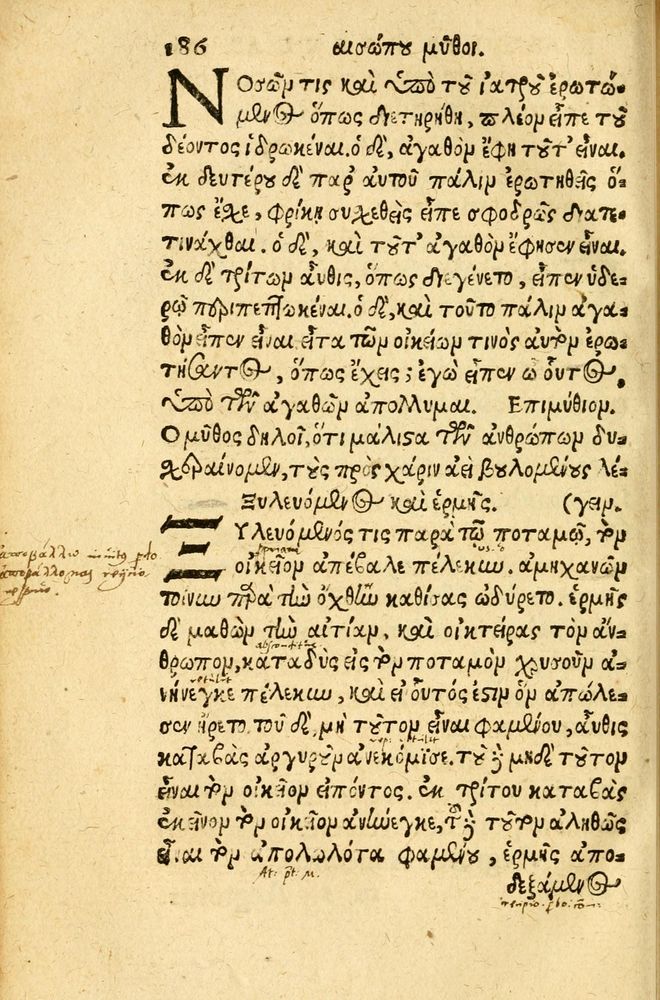 186 αισώπου μῦθοι.
Νοσῶν τις καὶ ὑπὸ τοῦ ἰατροῦ ἐρωτώ-
μενος ὅπως διετηρήθη, πλέον εἶπε τοῦ
δέοντος ἱδρωκέναι. ὁ δὲ, ἀγαθὸν ἔφη τοῦτ' εἶναι.
ἐκ δευτέρου δὲ παρ' αυτοῦ πάλιν ἐρωτηθεὶς ὅ-
πως ἔχε, φρίκη συχεθεὶς εἶπε σφοδρῶς διατε-
τινάχθαι. ὁ δὲ, καὶ τοῦτ' ἀγαθὸν ἔφησεν εἶναι.
ἐκ δὲ τρίτων αὖθις, ὅπως διεγένετο, εἶπεν ὑδέ-
ρῳ περιπεπτωκέναι. ὁ δὲ, καὶ τοῦτο πάλιν ἀγα-
θὸν εἶπεν εἶναι εἶτα τῶν οἰκείων τινὸς αυτὸν ἐρω-
τήσαντος, ὅπως ἔχεις; ἐγὼ εἶπεν ὦ οὗτος,
ὑπὸ τῶν ἀγαθῶν ἀπόλλυμαι. Επιμύθιον.
Ο μῦθος δηλοῖ, ὅτι μάλιστα τῶν ἀνθρώπων δυ-
χεραίνομεν, τοὺς πρὸς χάριν ἀεὶ βουλομένους λέ-
Ξυλευόμενος καὶ ἑρμῆς. (γειν.
Ξυλευόμενός τις παρὰ τῷ ποταμῷ, τὸν
οἰκεῖον ἀπέβαλε πέλεκυν. ἀμηχανῶν
τοίνυν παρὰ τὴν ὄχθην καθίσας ὠδύρετο. ἑρμῆς
δὲ μαθὼν τὴν αἰτίαν, καὶ οἰκτείρας τὸν ἄν-
θρωπον, καταδὺς εἰς τὸν ποταμὸν χρυσοῦν ἀ-
νήνεγκε πέλεκυν, καὶ εἰ οὗτός ἐστιν ὃν ἀπώλε-
σεν ἤρετο. τοῦ δὲ, μὴ τοῦτον εἶναι φαμένου, αὖθις
καταβὰς ἀργυροῦν ἀνεκόμισε. τοῦ δὲ μηδὲ τοῦτον
εἶναι τὸν οἰκεῖον εἰπόντος. ἐκ τρίτου καταβὰς
ἐκεῖνον τὸν οἰκεῖον ἀνήνεγκε, τοῦ δὲ τοῦτον ἀληθῶς
εἶναι τὸν ἀπολωλότα φαμένου, ἑρμῆς ἀπο-
δεξάμενος